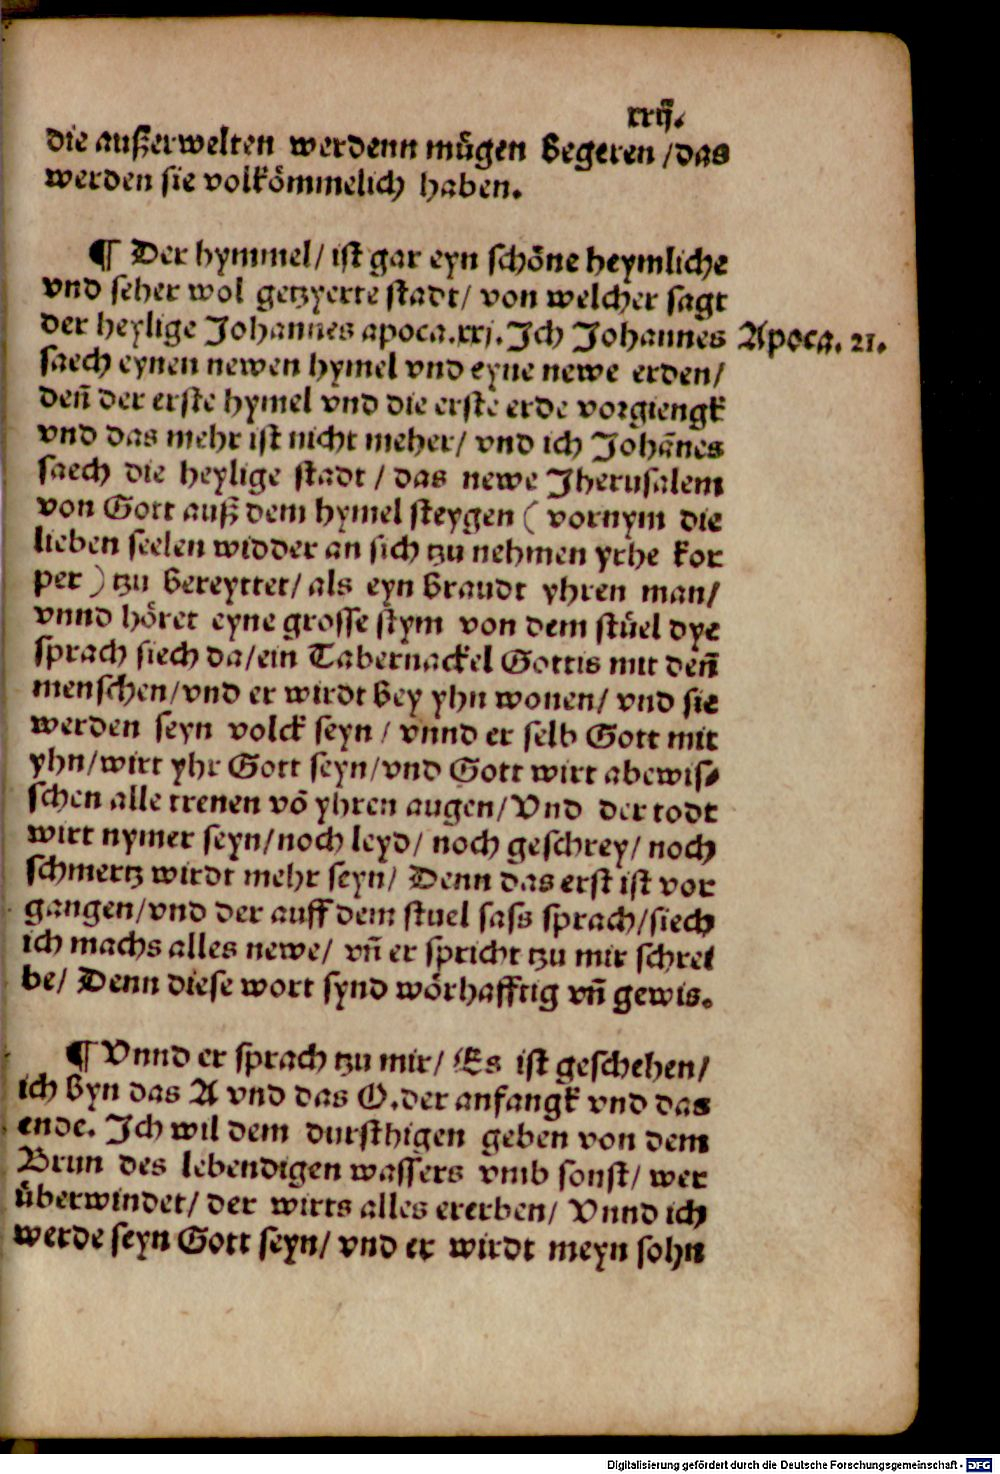 xxij.
die außerwelten werdenn mügen begeren /das
werden sie volkömmelich haben.
¶ Der hymmel/ ist gar eyn schöne heymliche
vnd seher wol getzyerte stadt/ von welcher sagt
der heylige Johannes apoca.xxj. Ich Johannes
Apoca. 21.
saech eynen newen hymel vnd eyne newe erden/
deñ der erste hymel vnd die erste erde vorgiengk
vnd das mehr ist nicht meher/ vnd ich Johãnes
saech die heylige stadt / das newe Jherusalem
von Gott auß dem hymel steygen ( vornym die
lieben seelen widder an sich tzu nehmen yrhe kor
per ) tzu bereyttet/ als eyn braudt yhren man/
vnnd höret eyne grosse stym von dem stüel dye
sprach siech da/ein Tabernackel Gottis mit deñ
menschen/vnd er wirdt bey yhn wonen/ vnd sie
werden seyn volck seyn / vnnd er selb Gott mit
yhn/wirt yhr Gott seyn/vnd Gott wirt abewis⸗
schen alle trenen võ yhren augen/Vnd der todt
wirt nymer seyn/noch leyd/ noch geschrey/ noch
schmertz wirdt mehr seyn/ Denn das erst ist vor
gangen/vnd der auff dem stuel sass sprach/siech
ich machs alles newe/ vñ er spricht tzu mir schrei
be/ Denn diese wort synd wörhafftig vñ gewis.
¶ Vnnd er sprach tzu mir/ Es ist geschehen/
ich byn das A vnd das O.der anfangk vnd das
ende. Ich wil dem dursthigen geben von dem
Brun des lebendigen wassers vmb sonst/ wer
überwindet/ der wirts alles ererben/ Vnnd ich
werde seyn Gott seyn/ vnd er wirdt meyn sohn
Digitalisierung gefördert durch die Deutsche Forschungsgemeinschaft - DFG